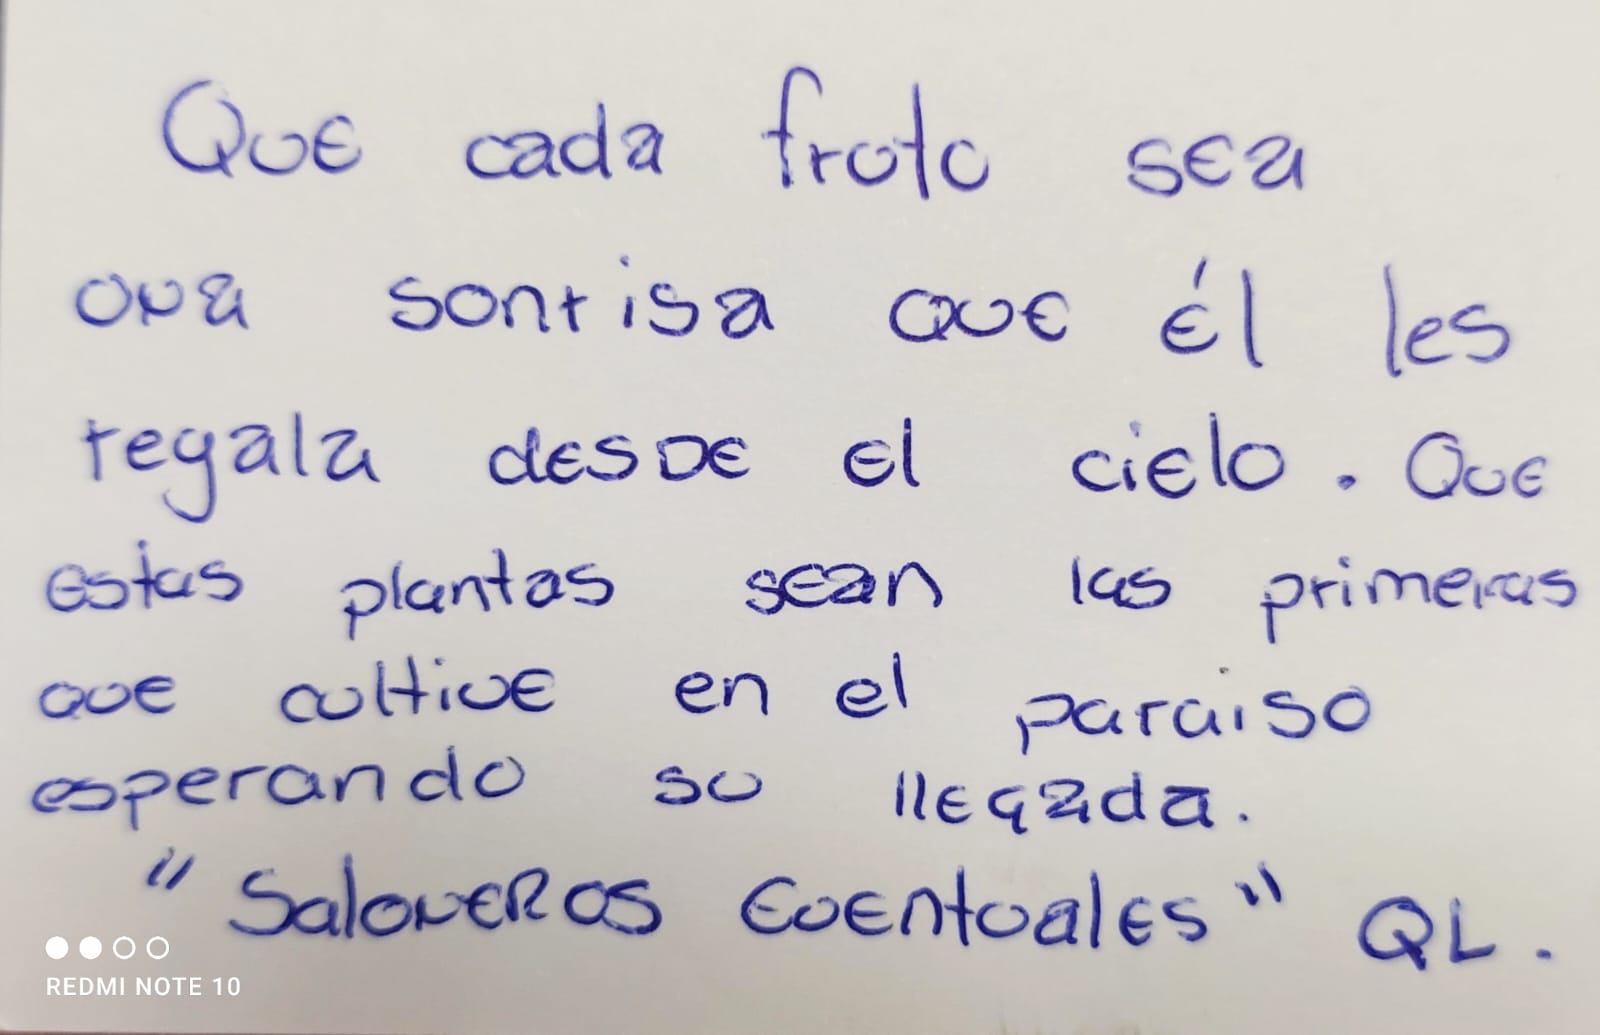 Que cada fruto sea
una sonrisa que él les
regala desde el cielo. Que
estas plantas sean las primeras
que cultive en el paraiso
esperando su llegada.
"Saloneros Eventuales" QL.
REDMI NOTE 10